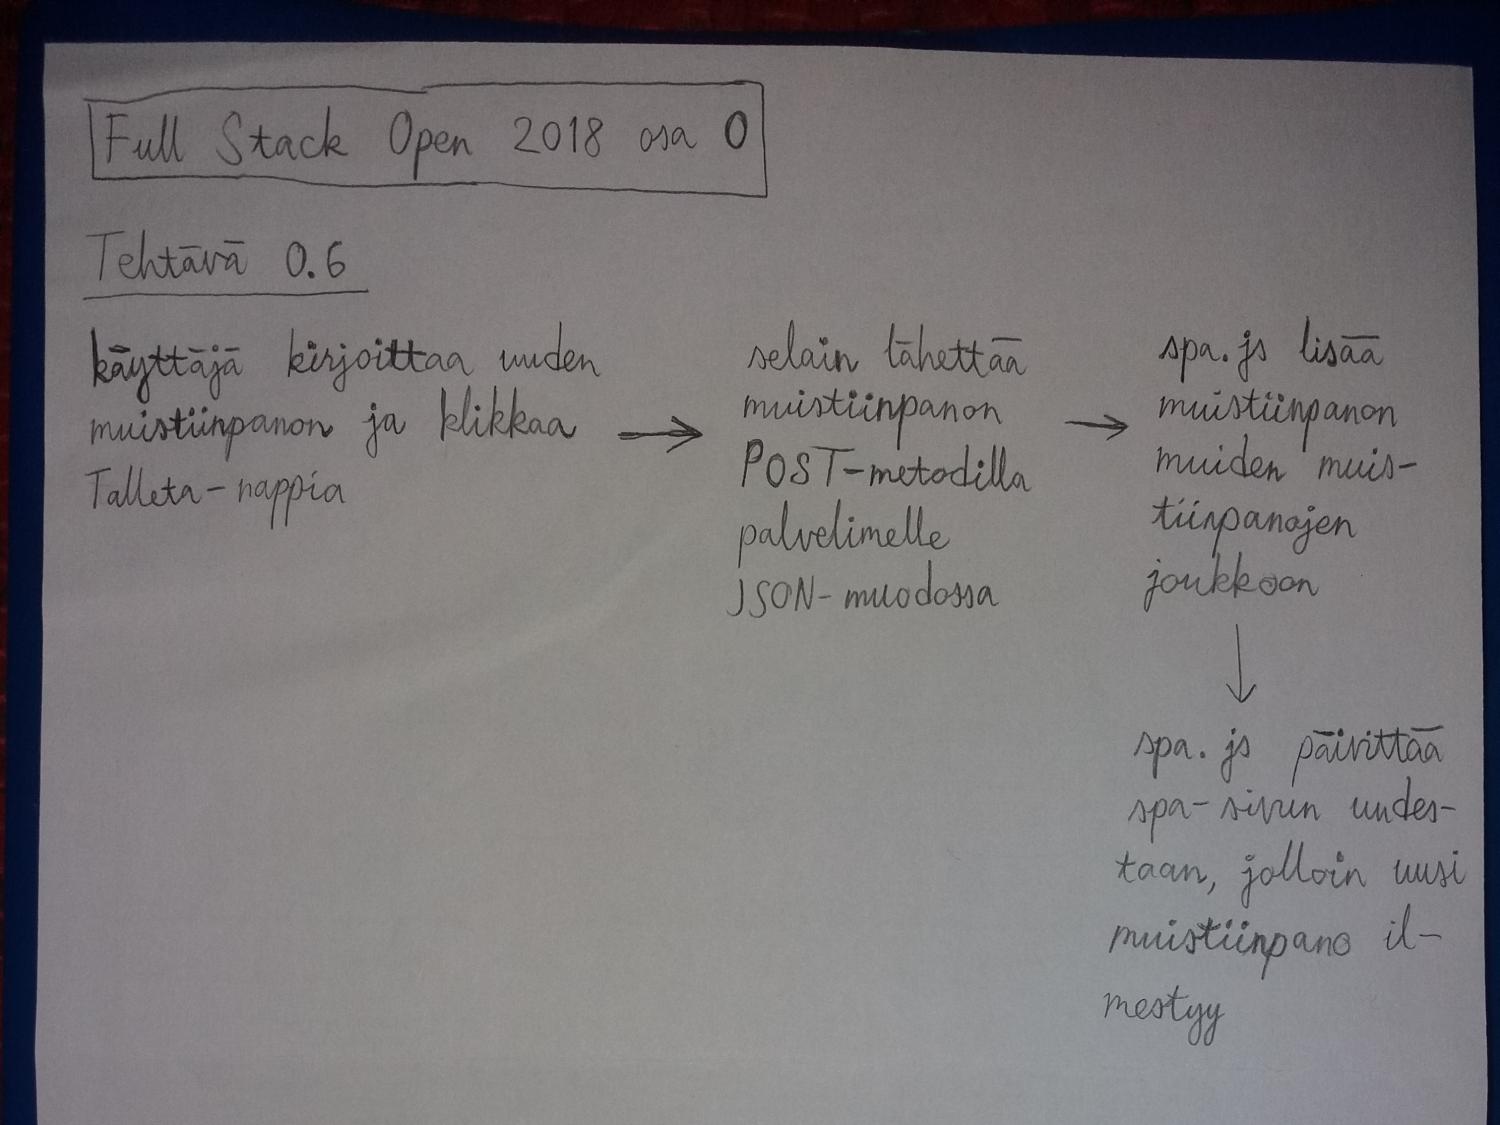 Full Stack Open 2018 osa 0
Tehtävä 0.6
käyttäjä kirjoittaa uuden
muistiinpanon ja klikkaa
Talleta-nappia
selain lähettää
muistiinpanon
POST-metodilla
palvelimelle
JSON-muodossa
spa.js lisää
muistiinpanon
muiden muis-
tiinpanojen
joukkoon
spa.js päivittää
spa-sivun uudes-
taan, jolloin uusi
muistiinpano il-
mestyy